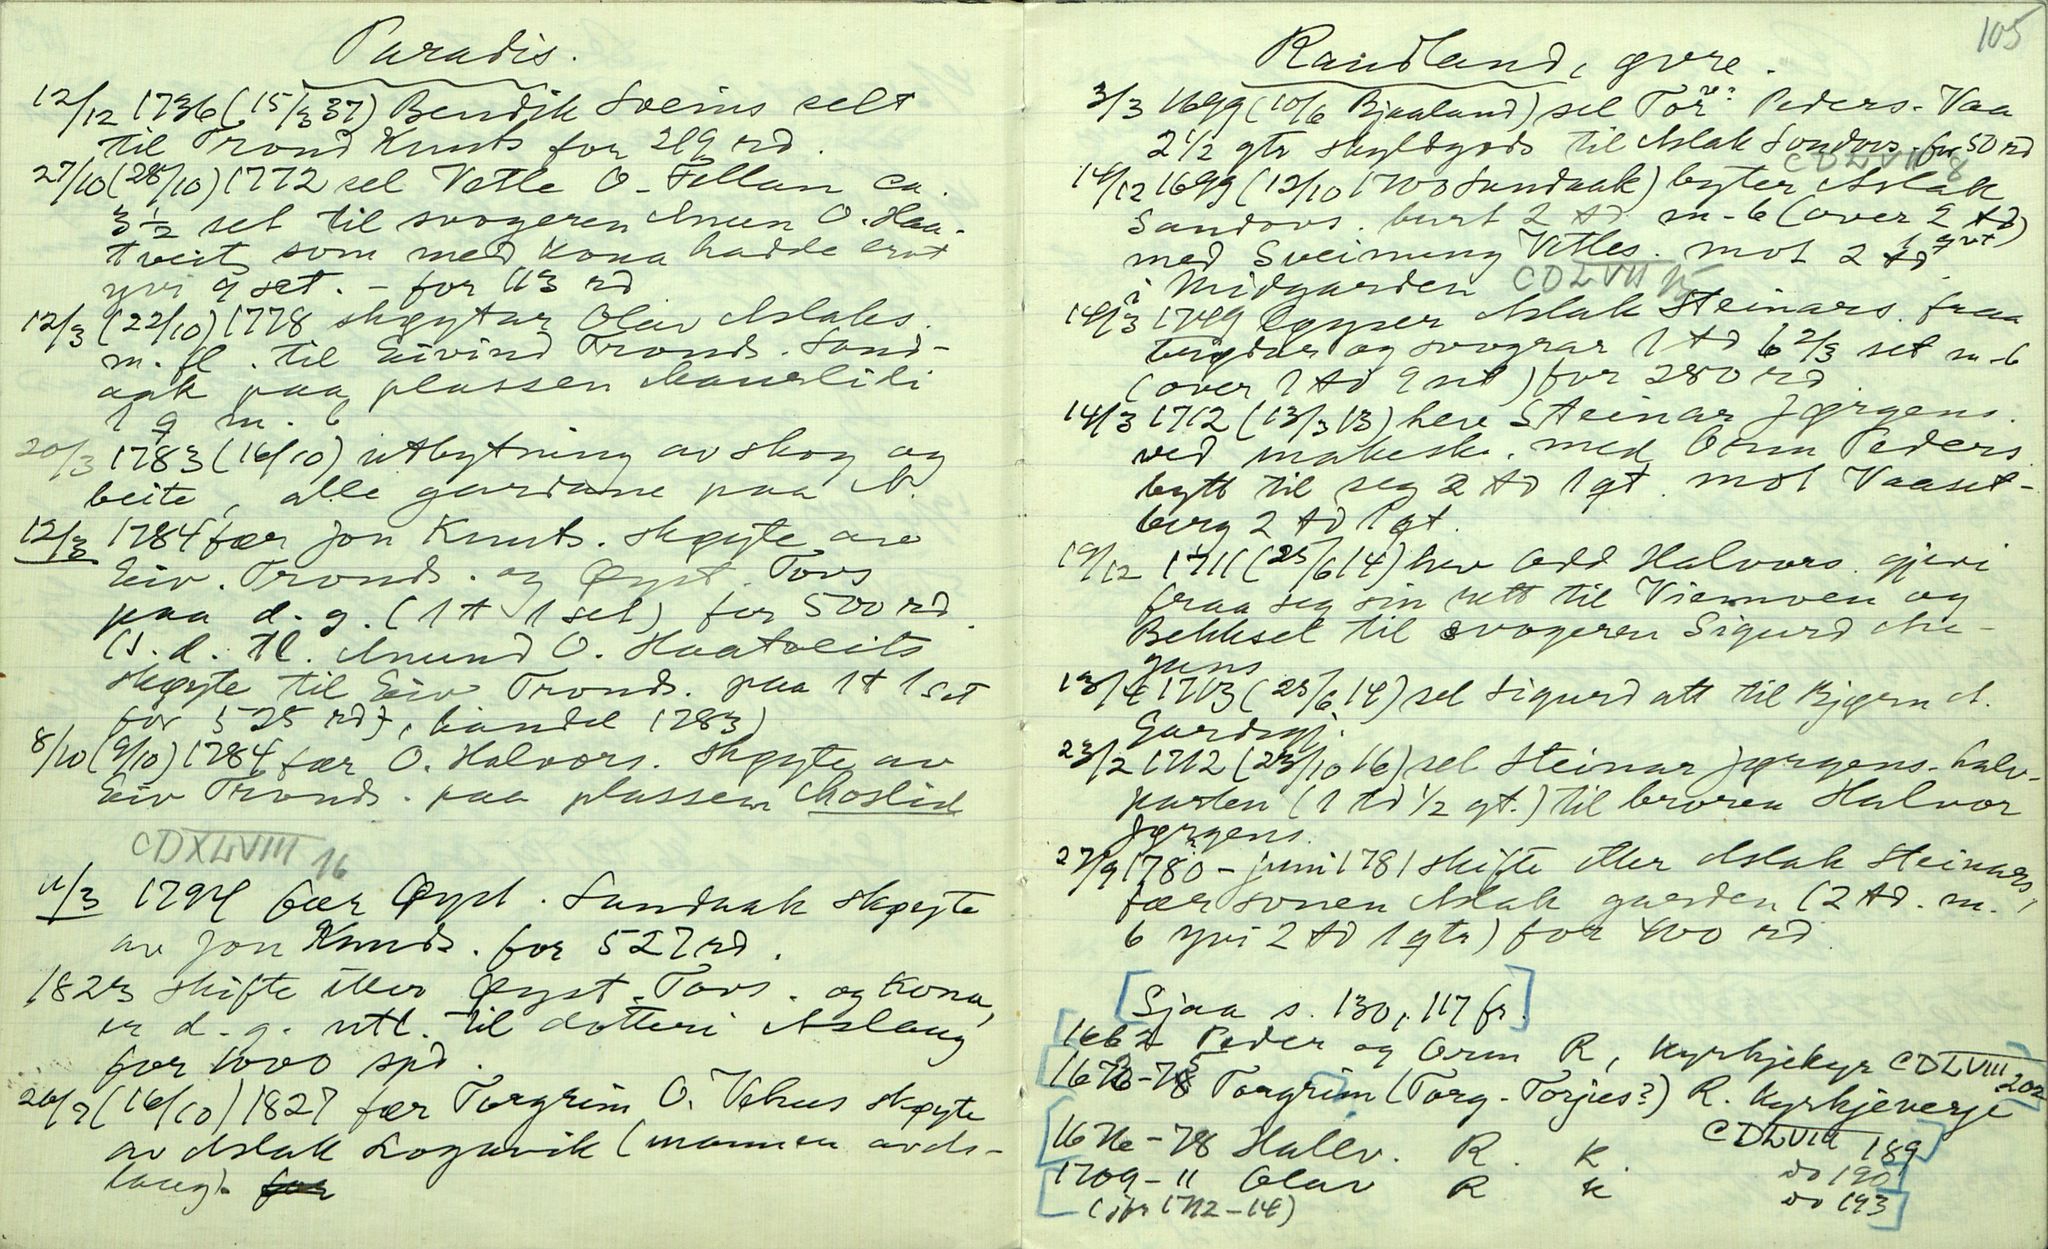 Paradis.
12/12 1736 (15/3 37) Bendik Sveins selt
til Trond Knuts for 219 rd.
27/10 (28/10) 1772 sel Vetle O. Sillan ca.
3 1/2 set til svogeren Anun O. Haa-
tveit, som med kona hadde ervt
yvi 9 set. - for 113 rd
12/3 (22/10) 1778 skøytar Olav Aslaks.
m. fl. til Eivind Tronds. Sand-
aak paa plassen
1 9 m. 6
20/3 1783 (16/10) utbytning av skog og
beite, alle gardane paa N.
12/3 1784 fær Jon Knuts. skøyte av
Eiv. Tronds. og Øyst. Tovs
paa d. g. (1 t 1 set) for 500 rd.
(s. d. tl. Anund O. Haatveits
skøyte til Eiv Tronds. paa 1 t 1 set
for 525 rd, handel 1783)
8/10 (9/10) 1784 fær O. Halvors. skøyte av
Eiv Tronds. paa plassen Moslid
CDXLVIII 16
11/3 1794 fær Øyst. Sandaak skøyte
av Jon Knuds. for 527 rd.
1823 skifte etter Øyst. Tovs. og kona,
er d. g. utl. til dotteri Aslaug
for 1000 spd.
26/7 (16/10) 1827 fær Torgrim O. Vehus skøyte
av Aslak Lognvik (mannen av As-
laug). for
105
Raudland, øvre.
3/3 1699 (10/6 Bjaaland) sel Tor Peders. Vaa
2 1/2 gtr skyldgods til Aslak Sondovs. for 50 rd
CDLVII 8
14/12 1699 (12/10 1700 Sandaak) byter Aslak
Sandovs. burt 2 td m-6 (over 2 td)
med Sveinung Vetles. mot 2 td 1 qrt
i Midgarden CDLVII 15
14/3 1749 løyser Aslak Steinars. fraa
brødar og svograr 1 td 6 2/3 set m-6
(over 1 td 9 set) for 280 rd.
14/3 1712 (13/3 13) hev Steinar Jørgens.
ved makesk. med Orm Peders
bytt til seg 2 td 1 qt. mot Vaaset-
berg 2 td 1 qt.
19/12 1711 (25/6 14) hev Odd Halvors. gjevi
fraa seg sin rett til Viermoen og
Bekksel til svogeren Sigurd Au-
guns
13/4 1713 (25/6 14) sel Sigurd att til Bjørn A.
Gardsgj.
23/2 1712 (23/10 16) sel Steinar Jørgens. halv-
parten (1 td 1/2 qt.) til broren Halvor
Jørgens.
27/9 1780 - juni 1781 skifte etter Aslak Steinars,
fær sonen Aslak garden (2 td. m.
6 yvi 2 td 1 qtr) for 400 rd.
[Sjaa s. 130, 117 fr.]
[1662 Peder og Orm R, kyrkjekyr CDLVIII 202]
[1676-78 Torgrim (Torg. Torjus?) R. kyrkjeverje
CDLVIII 189]
[1676-78 Hallv. R. K. do 190]
[1709-11 Olav R K do 193]
(ibr 1712-14)